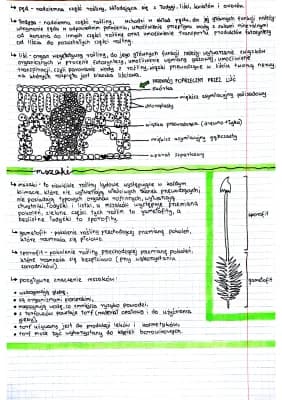 ↳ pęd - nadziemna część rośliny, składająca się z łodygi, liści, kwiatów i owoców.
↳ łodyga - nadziemna część rośliny,
do jej głównych funkcji należy
utrzymanie pędu w odpowiednim położeniu, umożliwienie przepływu wody z solami mineralnymi
od korzenia do innych części rośliny oraz umożliwienie transportu produktów fotosyntezy
od liścia do pozostałych części rośliny.
↳ liść - organ wegetatywny rośliny, do jego głównych funkcji należy wytwarzanie związków
organicznych w procesie fotosyntezy, umożliwienie wymiany gazowej, umożliwienie
transpiracji, czyli parowania wody z rośliny
PRZEKRÓJ POPRZECZNY PRZEZ LIŚĆ
skórka
miękisz asymilacyjny palisadowy
chloroplasty
wiązka przewodząca (drewno + łyko)
miękisz asymilacyjny gąbczasty
aparat szparkowy
mszaki
↳ mszaki - to niewielkie rośliny lądowe występujące w każdym
klimacie, które nie wytwarzają właściwych tkanek przewodzących,
nie posiadają typowych organów roślinnych, wytwarzają
chwytniki, łodyżki i listki, u mszaków występuje przemiana
pokoleń, zielone części tych roślin to gametofity, a
bezlistne łodyżki to sporofity.
↳ gametofit - pokolenie roślin przechodzącej przemianę pokoleń,
które rozmnaża się płciowo.
↳ sporofit - pokolenie roślin przechodzącej przemianę pokoleń,
które rozmnaża się bezpłciowo (przy wykorzystaniu
zarodników).
sporofit
gametofit
↳ pozytywne znaczenie mszaków:
• wzbogacają glebę,
• są organizmami pionierskimi,
• magazynują wodę, co zmniejsza ryzyko powodzi,
• z torfowców powstaje torf (materiał opałowy i do użyźniania
gleby),
• torf używany jest do produkcji leków i kosmetyków,
• torf może być wykorzystany do kąpieli borowinowych.